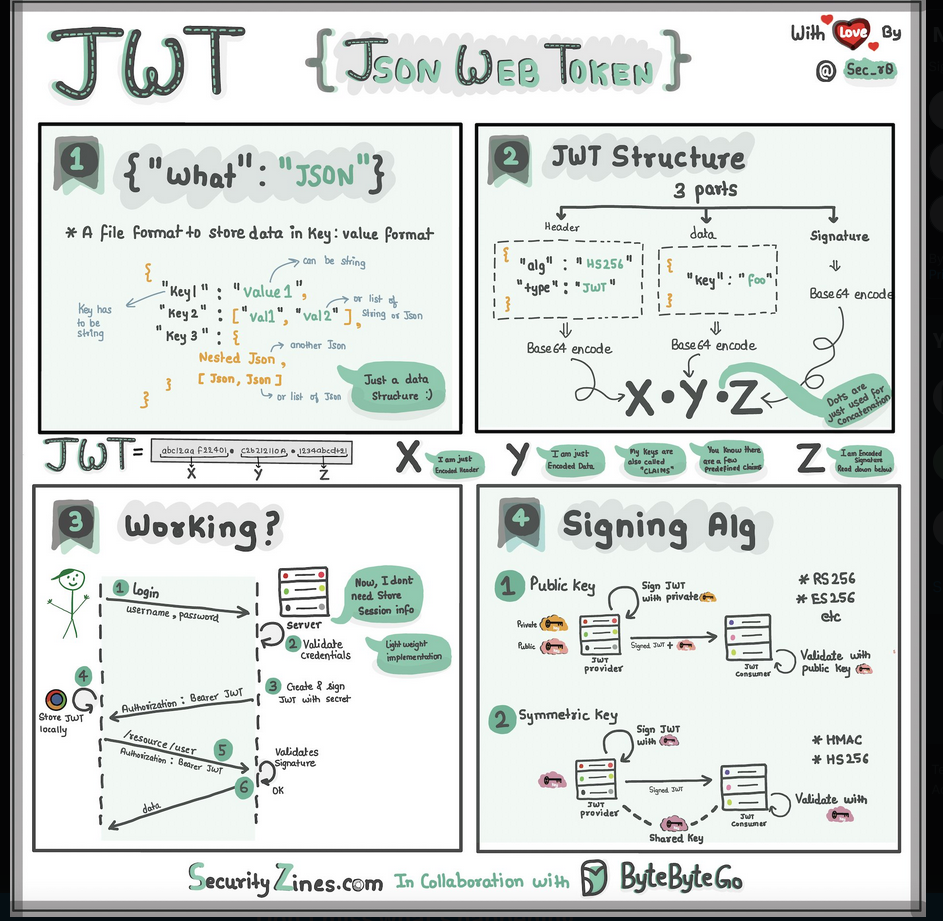 JWT
{ JSON WEB TOKEN }
With Love By
@ Sec_r0
1
{ "What" : "JSON" }
* A file format to store data in Key : value format
{
"Key1 : "value1",
can be string
Key has
to be
string
"Key2" : ["val1", "val2"],
or list of
String or Json
"Key 3" : {
another Json
Nested Json,
[ Json, Json ]
or list of Json
}
}
Just a data
Structure :)
2
JWT Structure
3 parts
Header
data
Signature
{
"alg" : "HS256"
"type" : "JWT"
}
{
"key" : "foo"
}
Base64 encode
Base64 encode
Base64 encode
X.Y.Z
Dots are
just used for
Concatenation
JWT =
X
Y
Z
X
I am just
Encoded Header
Y
I am just
Encoded Data
My Keys are
also called
"CLAIMS"
You Know there
are a few
Predefined claims
Z
I am Encoded
Signature
Read down below
3
Working?
1 Login
username, password
SERVER
Now, I dont
need Store
Session info
2 Validate
Credentials
Light weight
implementation
3 Create & sign
JWT with secret
Authorization : Bearer JWT
4
Store JWT
locally
/resource/user
5
Authorization : Bearer JWT
Validates
Signature
OK
6
data
4
Signing Alg
1 Public Key
Sign JWT
with private
Private
Public
JWT
provider
Signed JWT +
JWT
Consumer
* RS256
* ES256
etc
Validate with
public key
2 Symmetric Key
Sign JWT
with
JWT
provider
Signed JWT
JWT
Consumer
Shared Key
* HMAC
* HS256
Validate with
SecurityZines.com In Collaboration with ByteByteGo